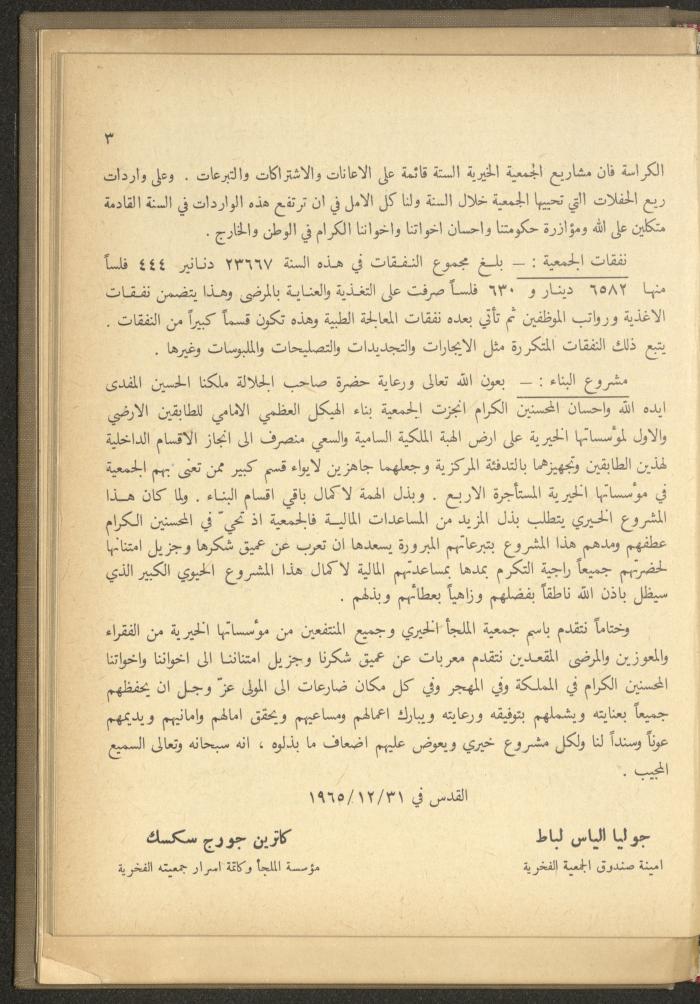 ٣
الكراسة فان مشاريع الجمعية الخيرية الستة قائمة على الاعانات والاشتراكات والتبرعات . وعلى واردات
ريع الحفلات التي تحييها الجمعية خلال السنة ولنا كل الامل في ان ترتفع هذه الواردات في السنة القادمة
متكلين على الله ومؤازرة حكومتنا واحسان اخواتنا واخواننا الكرام في الوطن والخارج .
نفقات الجمعية : — بلغ مجموع النفقات في هذه السنة ٢٣٦٦٧ دنانير ٤٤٤ فلساً
منها ٦٥٨٢ دينار و ٦٣٠ فلساً صرفت على التغذية والعناية بالمرضى وهذا يتضمن نفقات
الاغذية ورواتب الموظفين ثم تأتي بعده نفقات المعالجة الطبية وهذه تكون قسماً كبيراً من النفقات .
يتبع ذلك النفقات المتكررة مثل الايجارات والتجديدات والتصليحات والملبوسات وغيرها .
مشروع البناء : — بعون الله تعالى ورعاية حضرة صاحب الجلالة ملكنا الحسين المفدى
ايده الله واحسان المحسنين الكرام انجزت الجمعية بناء الهيكل العظمي الامامي للطابقين الارضي
والاول لمؤسساتها الخيرية على ارض الهبة الملكية السامية والسعي منصرف الى انجاز الاقسام الداخلية
لهذين الطابقين وتجهيزهما بالتدفئة المركزية وجعلهما جاهزين لايواء قسم كبير ممن تعنى بهم الجمعية
في مؤسساتها الخيرية المستأجرة الاربع . وبذل الهمة لاكمال باقي اقسام البناء . ولما كان هذا
المشروع الخيري يتطلب بذل المزيد من المساعدات المالية فالجمعية اذ تحيّ في المحسنين الكرام
عطفهم ومدهم هذا المشروع بتبرعاتهم المبرورة يسعدها ان تعرب عن عميق شكرها وجزيل امتنانها
لحضرتهم جميعاً راجية التكرم بمدها بمساعدتهم المالية لاكمال هذا المشروع الحيوي الكبير الذي
سيظل باذن الله ناطقاً بفضلهم وزاهياً بعطائهم وبذلهم .
وختاماً نتقدم باسم جمعية الملجأ الخيري وجميع المنتفعين من مؤسساتها الخيرية من الفقراء
والمعوزين والمرضى المقعدين نتقدم معربات عن عميق شكرنا وجزيل امتناننا الى اخواننا واخواتنا
المحسنين الكرام في المملكة وفي المهجر وفي كل مكان ضارعات الى المولى عزّ وجل ان يحفظهم
جميعاً بعنايته ويشملهم بتوفيقه ورعايته ويبارك اعمالهم ومساعيهم ويحقق امالهم وامانيهم ويديمهم
عوناً وسنداً لنا ولكل مشروع خيري ويعوض عليهم اضعاف ما بذلوه ، انه سبحانه وتعالى السميع
المجيب .
القدس في ٣١/١٢/١٩٦٥
جوليا الياس لباط
امينة صندوق الجمعية الفخرية
كاترين جورج سكسك
مؤسسة الملجأ وكاتمة اسرار جمعيته الفخرية